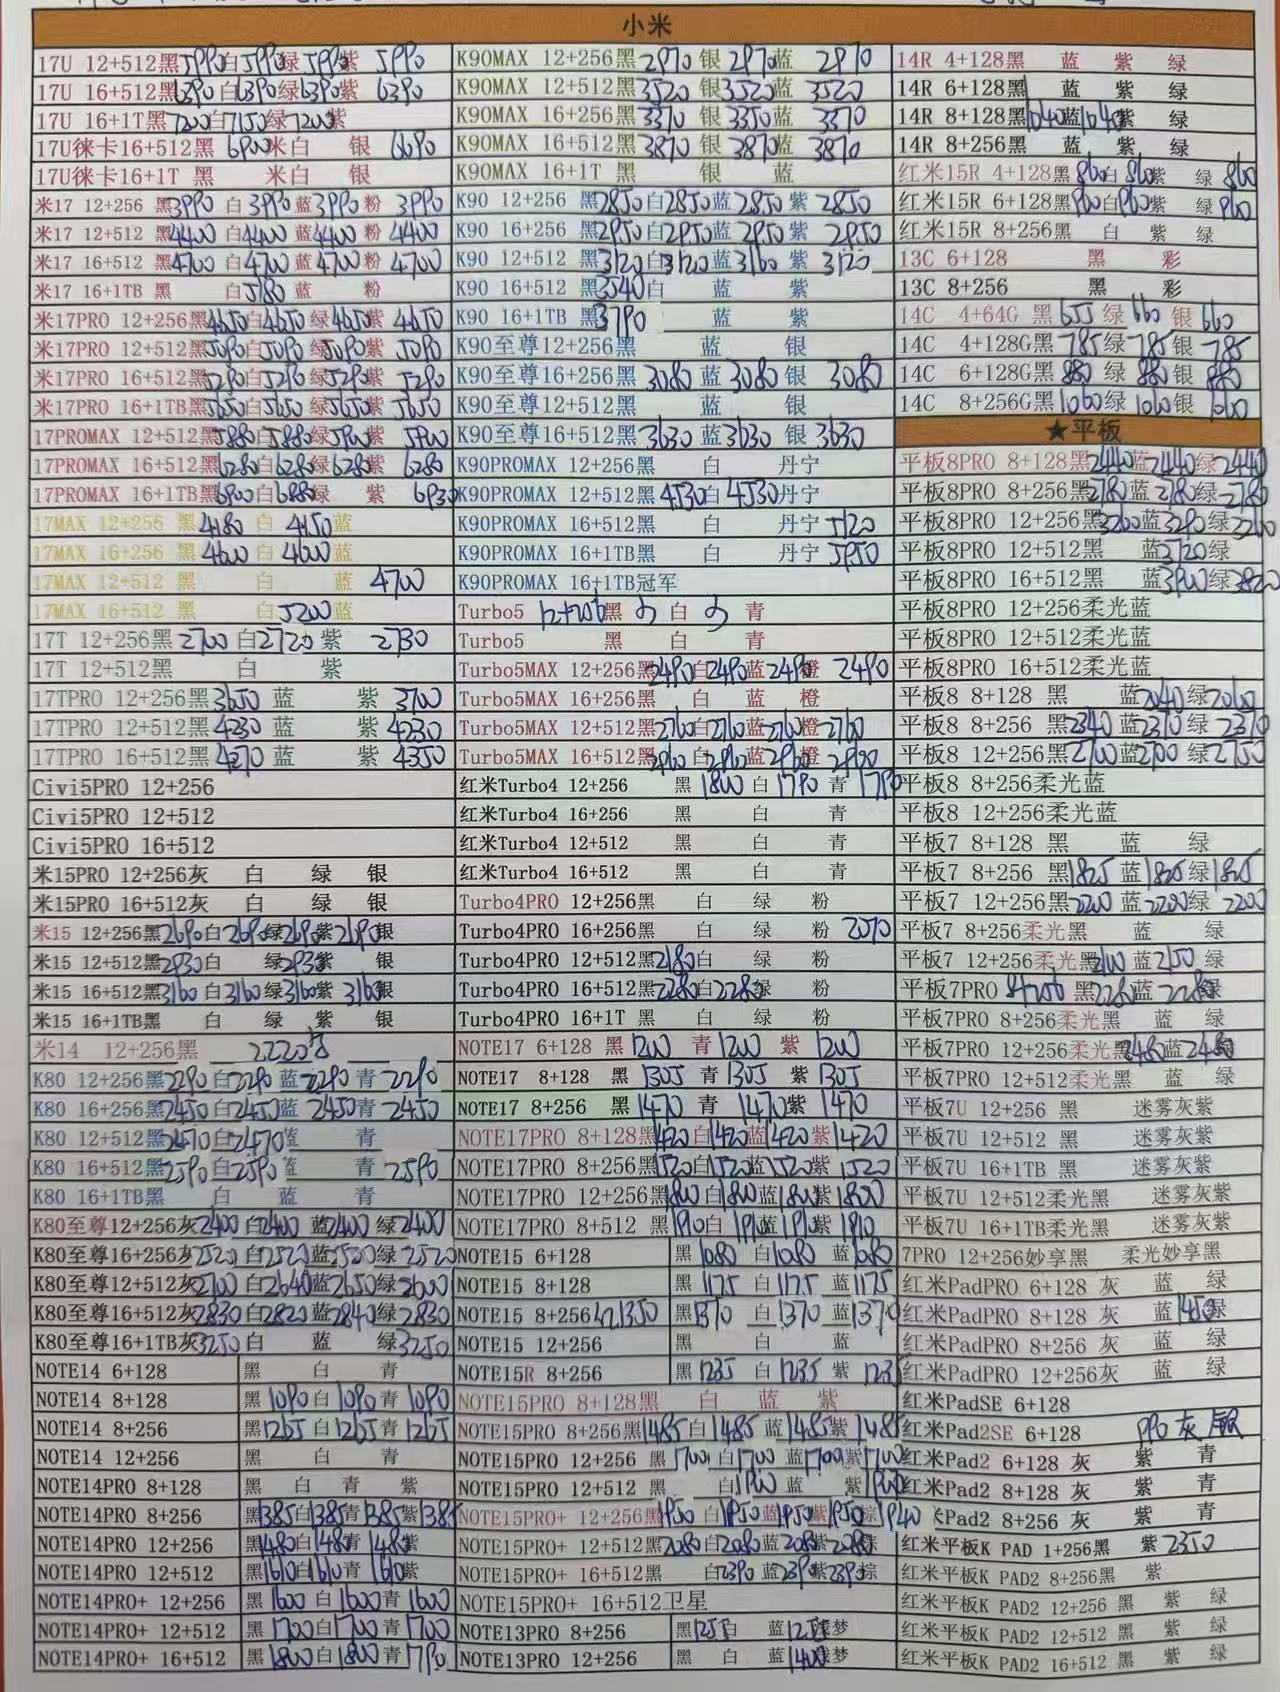 小米
17U 12+512黑5990白5990绿5990紫 5990
17U 16+512黑6390白6390绿6390紫 6390
17U 16+1T黑7200白7150绿7200紫
17U徕卡16+512黑 6900米白 银 6690
17U徕卡16+1T 黑 米白 银
米17 12+256 黑3990 白3990蓝3990粉 3990
米17 12+512 黑4400白4400蓝4400粉 4400
米17 16+512 黑4700白4700蓝4700粉 4700
米17 16+1TB 黑 白5180蓝 粉
米17PRO 12+256黑4650白4650绿4650紫 4650
米17PRO 12+512黑5090白5090绿5090紫 5090
米17PRO 16+512黑5290白5290绿5290紫 5290
米17PRO 16+1TB黑5650白5650绿5650紫 5650
17PROMAX 12+512黑5880白5880绿5900紫 5900
17PROMAX 16+512黑6280白6280绿6280紫 6280
17PROMAX 16+1TB黑6900白6880绿 紫 6930
17MAX 12+256 黑4180 白 4150蓝
17MAX 16+256 黑4600 白 4600蓝
17MAX 12+512 黑 白 蓝 4700
17MAX 16+512 黑 白5200蓝
17T 12+256黑2700 白2720紫 2730
17T 12+512黑 白 紫
17TPRO 12+256黑3650 蓝 紫 3700
17TPRO 12+512黑4230 蓝 紫 4230
17TPRO 16+512黑4270 蓝 紫 4350
Civi5PRO 12+256
Civi5PRO 12+512
Civi5PRO 16+512
米15PRO 12+256灰 白 绿 银
米15PRO 16+512灰 白 绿 银
米15 12+256黑2690白2690绿2690紫2690银
米15 12+512黑2930白 绿2930紫 银
米15 16+512黑3160白3160绿3160紫3160银
米15 16+1TB黑 白 绿 紫 银
米14 12+256黑 2220
K80 12+256黑2290白2290蓝2290青 2290
K80 16+256黑2450白2450蓝 2450青 2450
K80 12+512黑2470白2470蓝 青
K80 16+512黑2590白2590蓝 青 2590
K80 16+1TB黑 白 蓝 青
K80至尊12+256灰2400白2400 蓝2400绿 2400
K80至尊16+256灰2520白2520蓝2520绿 2520
K80至尊12+512灰2700白2640蓝2650绿2600
K80至尊16+512灰2830白2820蓝2840绿2830
K80至尊16+1TB灰3250白 蓝 绿3250
NOTE14 6+128 黑 白 青
NOTE14 8+128 黑1090白1090青1090
NOTE14 8+256 黑1265白1265青1265
NOTE14 12+256 黑 白 青
NOTE14PRO 8+128 黑 白 青 紫
NOTE14PRO 8+256 黑1385白1385青1385紫1385
NOTE14PRO 12+256 黑1480白1480青1480紫
NOTE14PRO 12+512 黑1610白1610青1610紫
NOTE14PRO+ 12+256 黑1600白1600青1600
NOTE14PRO+ 12+512 黑1700白1700青1700
NOTE14PRO+ 16+512 黑1800白1800青1790
K90MAX 12+256黑2970银2970蓝 2970
K90MAX 12+512黑3520银3520蓝 3520
K90MAX 16+256黑3370银3350蓝 3370
K90MAX 16+512黑3870银3870蓝 3870
K90MAX 16+1T 黑 银 蓝
K90 12+256 黑2850白2850蓝2850紫 2850
K90 16+256 黑2950白2950蓝2950紫 2950
K90 12+512 黑3120白3120蓝3160紫 3120
K90 16+512 黑3540白 蓝 紫
K90 16+1TB 黑3790 蓝 紫
K90至尊12+256黑 蓝 银
K90至尊16+256黑3080蓝3080银 3080
K90至尊12+512黑 蓝 银
K90至尊16+512黑3630蓝3630银 3630
K90PROMAX 12+256黑 白 丹宁
K90PROMAX 12+512黑4530白4530丹宁
K90PROMAX 16+512黑 白 丹宁 5120
K90PROMAX 16+1TB黑 白 丹宁 5950
K90PROMAX 16+1TB冠军
Turbo5 12+256黑 白 青
Turbo5 黑 白 青
Turbo5MAX 12+256黑2490白2490蓝2490橙 2490
Turbo5MAX 16+256黑 白 蓝 橙
Turbo5MAX 12+512黑2760白2760蓝2760橙2760
Turbo5MAX 16+512黑2960白2960蓝2960橙2990
红米Turbo4 12+256 黑1800白1790青1790
红米Turbo4 16+256 黑 白 青
红米Turbo4 12+512 黑 白 青
红米Turbo4 16+512 黑 白 青
Turbo4PRO 12+256黑 白 绿 粉
Turbo4PRO 16+256黑 白 绿 粉 2070
Turbo4PRO 12+512黑2180白 绿 粉
Turbo4PRO 16+512黑2280白2280绿 粉
Turbo4PRO 16+1T 黑 白 绿 粉
NOTE17 6+128 黑1200 青1200 紫 1200
NOTE17 8+128 黑1305 青1305 紫1305
NOTE17 8+256 黑1470 青 1470紫 1470
NOTE17PRO 8+128黑1420白1420蓝1420紫1420
NOTE17PRO 8+256黑1520白1520蓝1520紫 1520
NOTE17PRO 12+256黑1800白1800蓝1800紫1800
NOTE17PRO 8+512 黑1910白1910蓝1910紫1910
NOTE15 6+128 黑1080 白1080 蓝1080
NOTE15 8+128 黑1175 白1175 蓝1175
NOTE15 8+256 1350 黑1370 白1370 蓝1370
NOTE15 12+256 黑 白 蓝
NOTE15R 8+256 黑1235 白1235 紫 1235
NOTE15PRO 8+128黑 白 蓝 紫
NOTE15PRO 8+256黑1485白1485蓝1485紫1485
NOTE15PRO 12+256 黑1700白1700蓝1700紫1700
NOTE15PRO 12+512 黑 白1900蓝 紫1900
NOTE15PRO+ 12+256黑1950白1950蓝1950紫1950棕1940
NOTE15PRO+ 12+512黑2080白2080蓝2080紫2080棕
NOTE15PRO+ 16+512黑 白2390蓝2390紫2390棕
NOTE15PRO+ 16+512卫星
NOTE13PRO 8+256 黑1255白 蓝1255梦
NOTE13PRO 12+256 黑 白 蓝1400梦
14R 4+128黑 蓝 紫 绿
14R 6+128黑 蓝 紫 绿
14R 8+128黑1040蓝1040紫 绿
14R 8+256黑 蓝 紫 绿
红米15R 4+128黑860白860紫 绿 860
红米15R 6+128黑960白960紫 绿 960
红米15R 8+256黑 白 紫 绿
13C 6+128 黑 彩
13C 8+256 黑 彩
14C 4+64G 黑655绿660银660
14C 4+128G黑785绿785银785
14C 6+128G黑880绿880银880
14C 8+256G黑1060绿1060银1060
★平板
平板8PRO 8+128黑2440蓝2440绿2440
平板8PRO 8+256黑2780蓝2780绿2780
平板8PRO 12+256黑3260蓝3290绿3260
平板8PRO 12+512黑 蓝3720绿
平板8PRO 16+512黑 蓝3900绿3820
平板8PRO 12+256柔光蓝
平板8PRO 12+512柔光蓝
平板8PRO 16+512柔光蓝
平板8 8+128 黑 蓝2040绿2060
平板8 8+256 黑2340蓝2370绿 2370
平板8 12+256黑2700蓝2700绿2750
平板8 8+256柔光蓝
平板8 12+256柔光蓝
平板7 8+128 黑 蓝 绿
平板7 8+256 黑1825蓝1825绿1825
平板7 12+256黑2200蓝2200绿2200
平板7 8+256柔光黑 蓝 绿
平板7 12+256柔光黑2100蓝2150绿
平板7PRO 8+256 黑2280蓝2280绿
平板7PRO 8+256柔光黑 蓝 绿
平板7PRO 12+256柔光黑2480蓝2480绿
平板7PRO 12+512柔光黑 蓝 绿
平板7U 12+256 黑 迷雾灰紫
平板7U 12+512 黑 迷雾灰紫
平板7U 16+1TB 黑 迷雾灰紫
平板7U 12+512柔光黑 迷雾灰紫
平板7U 16+1TB柔光黑 迷雾灰紫
7PRO 12+256妙享黑 柔光妙享黑
红米PadPRO 6+128 灰 蓝 绿
红米PadPRO 8+128 灰 蓝1450绿
红米PadPRO 8+256 灰 蓝 绿
红米PadPRO 12+256灰 蓝 绿
红米PadSE 6+128
红米Pad2SE 6+128 990灰 银
红米Pad2 6+128 灰 紫 青
红米Pad2 8+128 灰 紫 青
Pad2 8+256 灰 紫 青
红米平板K PAD 1+256黑 紫2350
红米平板K PAD2 8+256黑 紫
红米平板K PAD2 12+256 黑 紫 绿
红米平板K PAD2 12+512 黑 紫 绿
红米平板K PAD2 16+512 黑 紫 绿